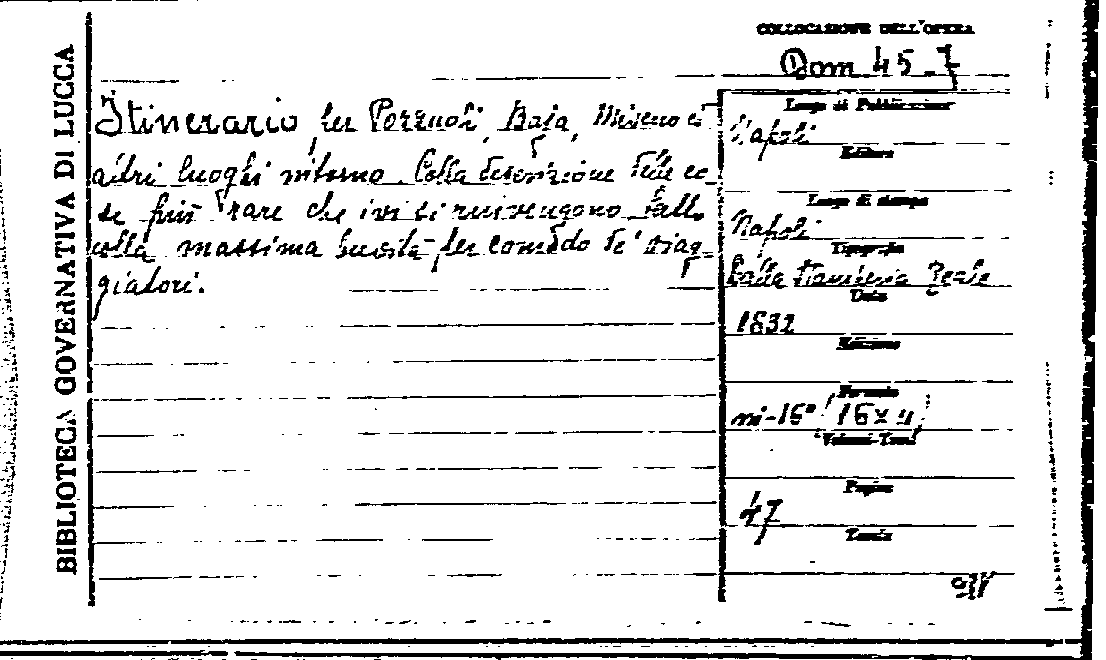 COLLOCAZIONE DELL'OPERA
Dom 45-7
BIBLIOTECA GOVERNATIVA DI LUCCA
Itinerario per Pozzuoli, Baja, Miseno ed
altri luoghi intorno. Colla descrizione delle co-
se più rare che ivi si rinvengono
colla massima brevità per comodo de' viag-
giatori.
Luogo di Pubblicazione
Napoli
Editore
Luogo di stampa
Napoli
Tipografia
Dalla Stamperia Reale
Data
1832
Edizione
Formato
in-16° (16x11)
Volumi-Tomi
Pagine
47
Tavole